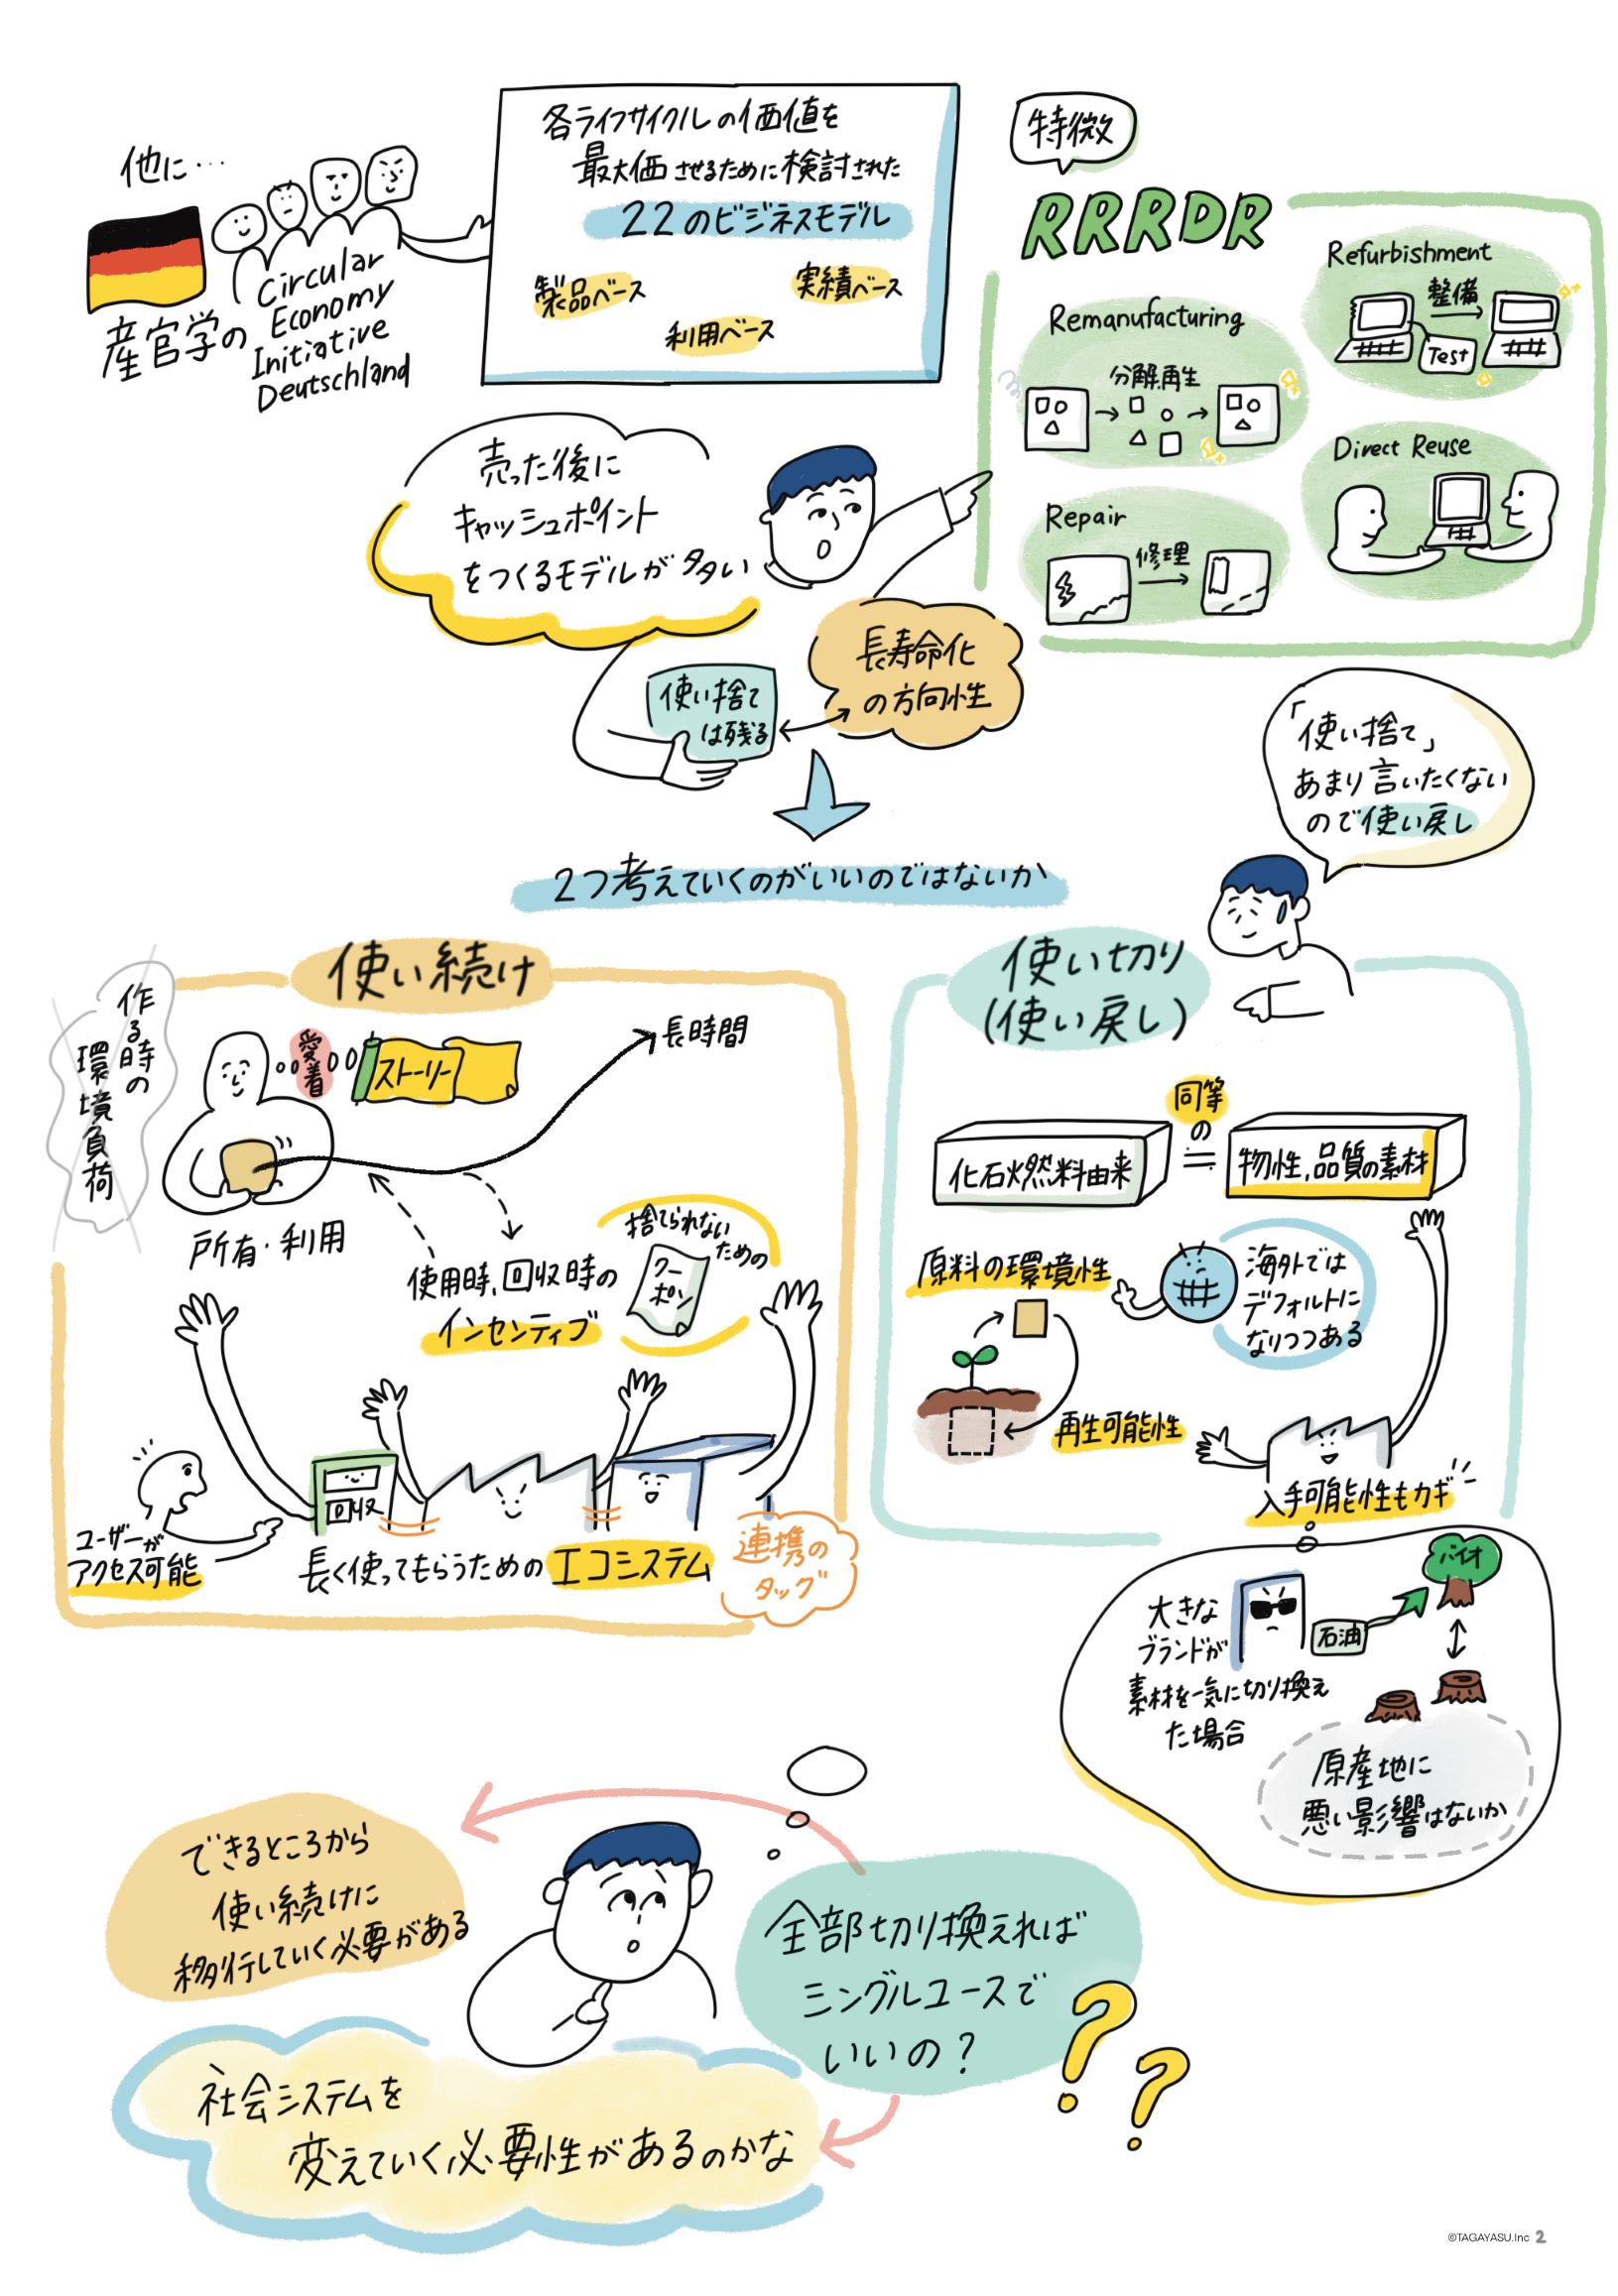 他に…
産官学の
Circular
Economy
Initiative
Deutschland
各ライフサイクルの価値を
最大価させるために検討された
22のビジネスモデル
製品ベース
実績ベース
利用ベース
特徴
RRRDR
Refurbishment
整備
Test
Remanufacturing
分解、再生
Direct Reuse
Repair
修理
売った後に
キャッシュポイント
をつくるモデルが多い
使い捨て
は残る
長寿命化
の方向性
「使い捨て」
あまり言いたくない
ので使い戻し
2つ考えていくのがいいのではないか
使い続け
作る時の
環境負荷
愛着
ストーリー
長時間
所有・利用
使用時、回収時の
インセンティブ
捨てられない
ための
クーポン
回収
ユーザーが
アクセス可能
長く使ってもらうためのエコシステム
連携の
タッグ
使い切り
(使い戻し)
化石燃料由来
同等
の
=
物性、品質の素材
原料の環境性
海外では
デフォルトに
なりつつある
再生可能性
入手可能性もカギ
大きな
ブランドが
素材を一気に切り換え
た場合
石油
バイオ
原産地に
悪い影響はないか
できるところから
使い続けに
移行していく必要がある
全部切り換えれば
シングルユースで
いいの?
??
社会システムを
変えていく必要性があるのかな
©TAGAYASU.Inc 2